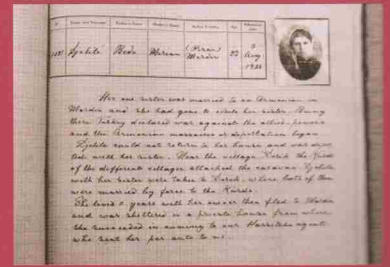 Name and Surname Father's Name Mother's Name Age
1081 Djihilé Bedo Mariam (Piran) Mardin 22 9 Aug
Her one sister was married to an Armenian in
Mardin and she had gone to visit her sister. During
there Turkey declared war against the allied powers
and the Armenian massacres & deportation began
could not return to her house and was depor-
ted with her sister. Near the village the Kurds
of the different villages attacked the caravan.
with her sister were taken to where both of them
were married by force to the Kurds.
She lived years with her owner then fled to Mardin
and was sheltered in a private house from where
she succeeded in coming to our agent
who sent her per auto to us.